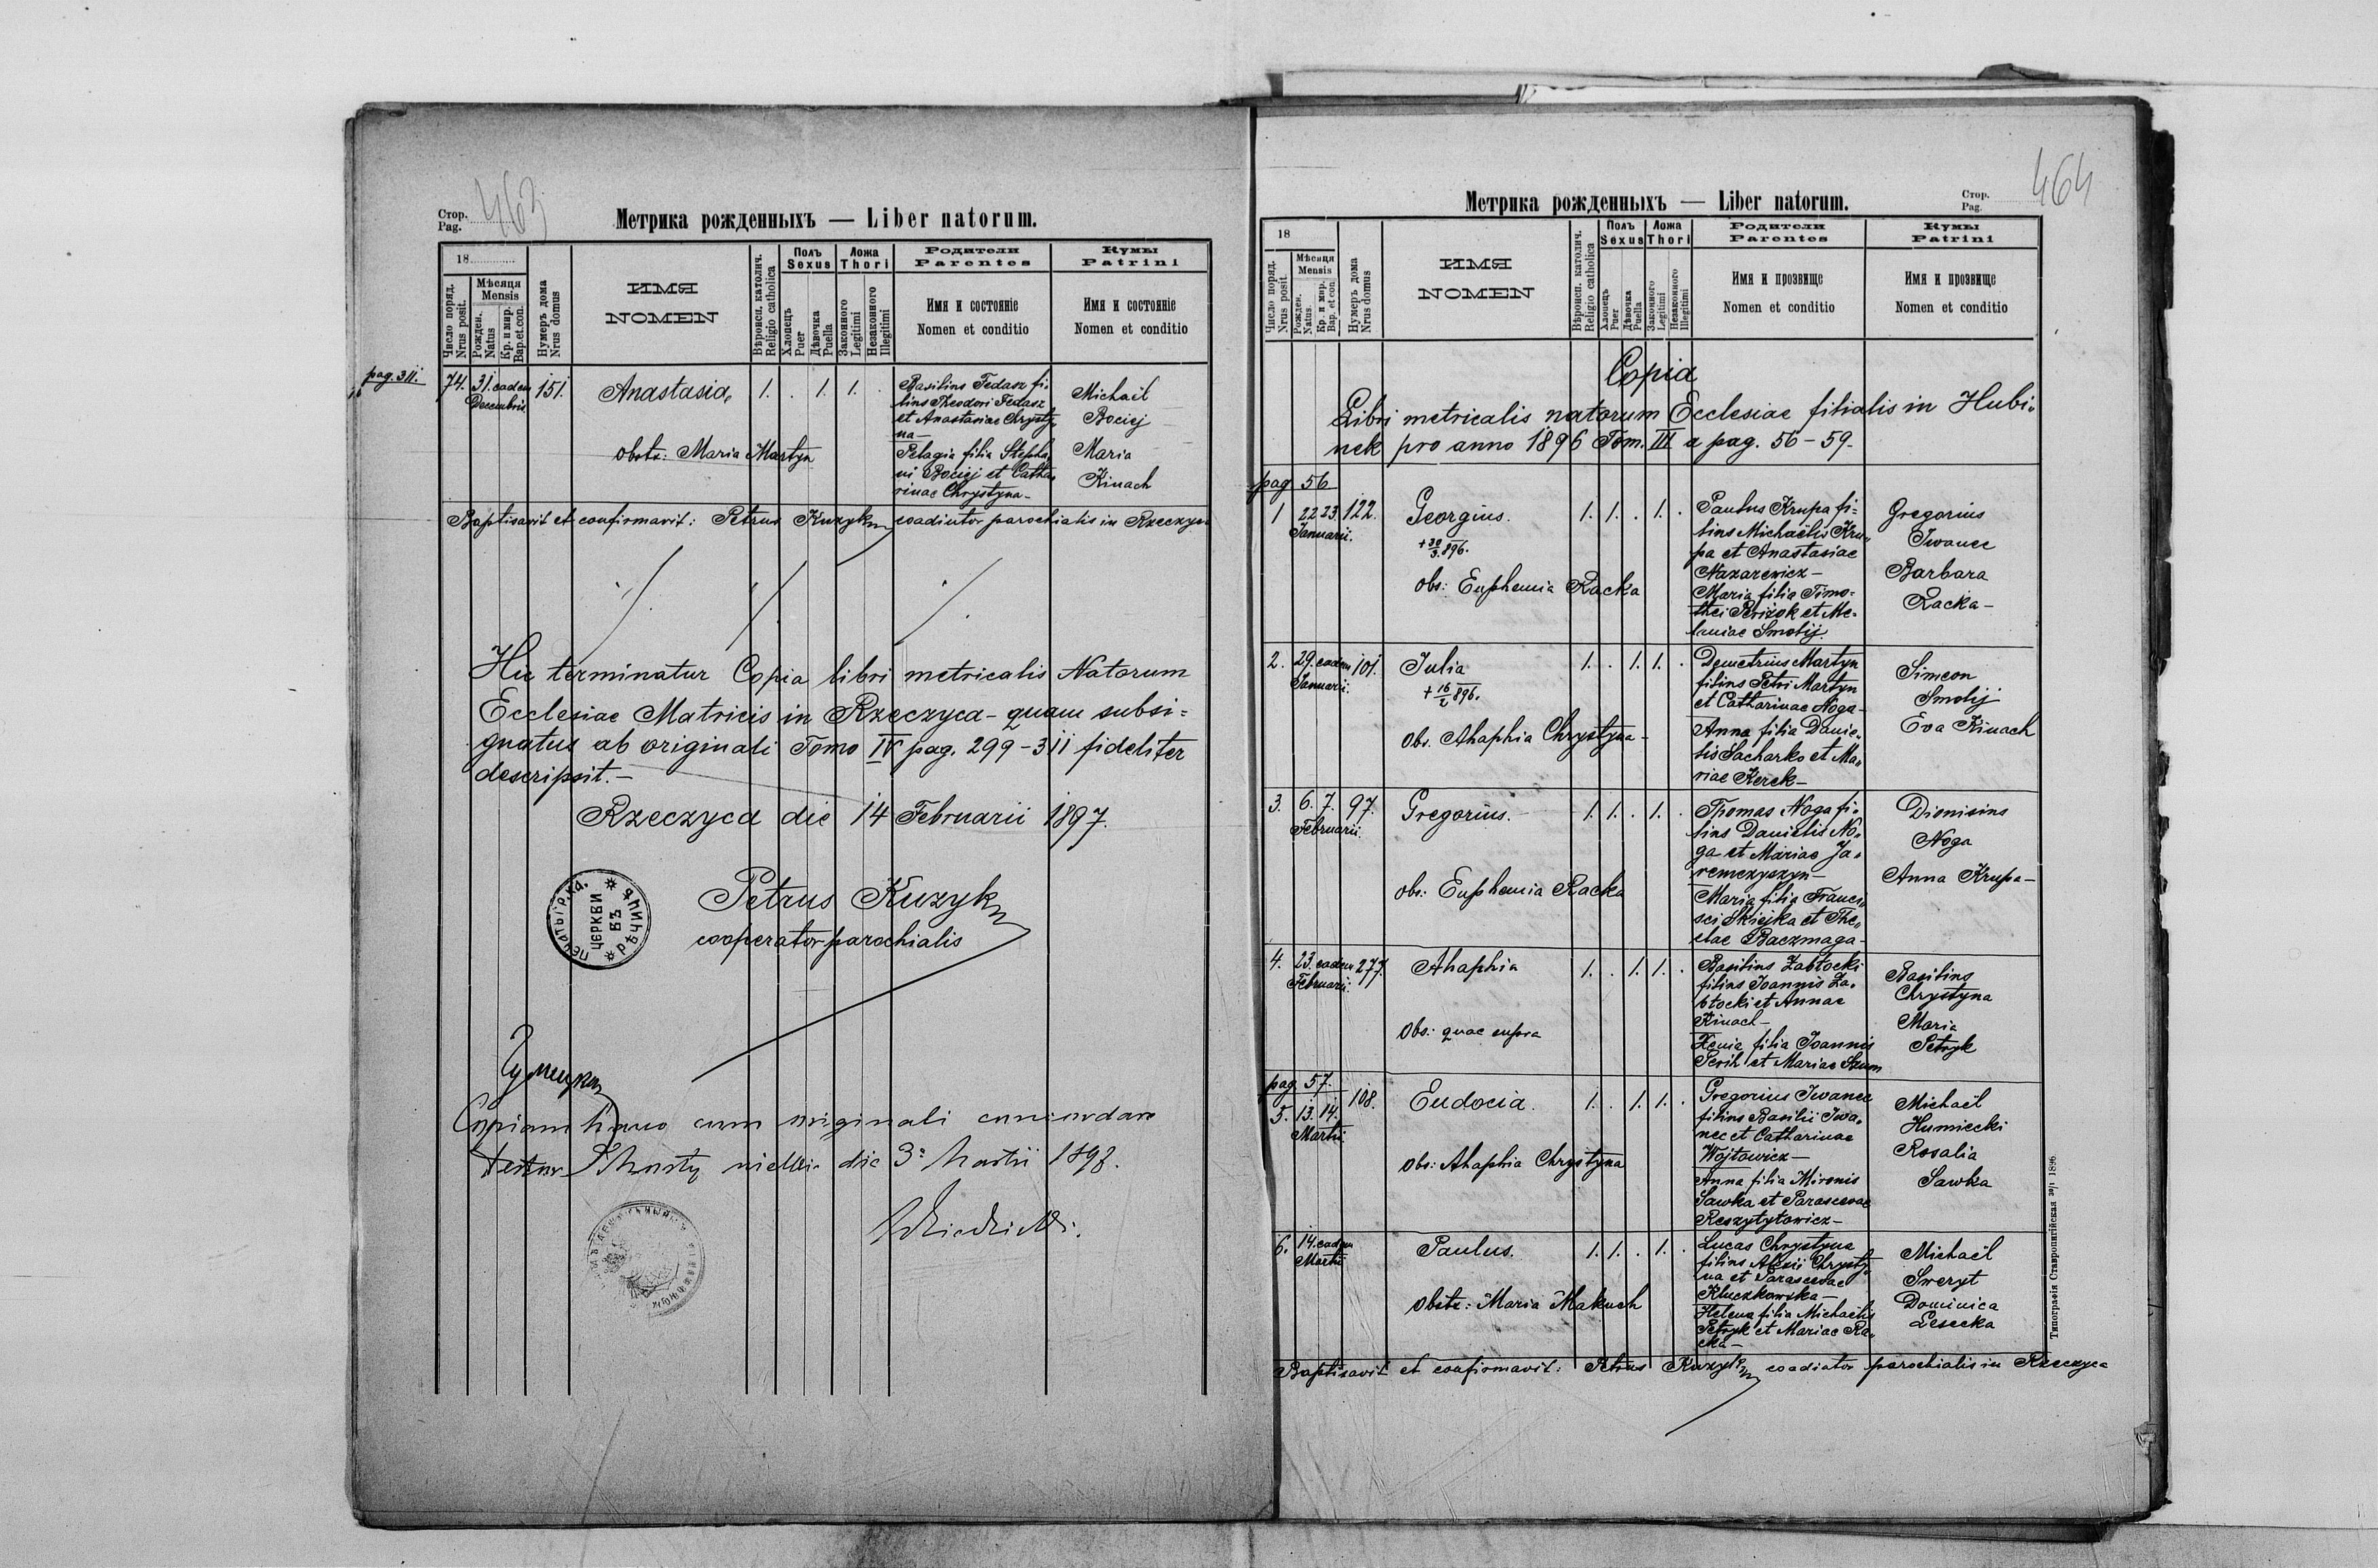 463
Стор.
Pag.
Метрика рожденныхъ — Liber natorum.
18
Число поряд.
Nrus posit.
Мѣсяця
Mensis
Рожден.
Natus
Кр. и мир.
Bap. et con.
Нумеръ дома
Nrus domus
ИМЯ
NOMEN
Вѣроисп. католич.
Religio catholica
Полъ
Sexus
Хлопецъ
Puer
Дѣвочка
Puella
Ложа
Thori
Законного
Legitimi
Незаконного
Illegitimi
Родители
Parentes
Имя и состояніе
Nomen et conditio
Кумы
Patrini
Имя и состояніе
Nomen et conditio
pag. 311.
74. 31. eadem 151. Anastasia 1. . 1. 1. .
Decembris
obstr: Maria Martyn
Basilius Fedasz fi-
lius Theodori Fedasz
et Anastasiae Chrysty
na —
Pelagia filia Stepha
ni Bociej et Catha
rinae Chrystyna —
Michaël
Bociej
Maria
Kinach
Baptisavit et confirmavit: Petrus Kuzyk coadiutor parochialis in Rzeczyca
Hic terminatur Copia libri metricalis Natorum
Ecclesiae Matricis in Rzeczyca - quam subsi=
gnatus ab originali Tomo IV pag. 299 - 311 fideliter
descripsit. —
Rzeczyca die 14 Februarii 1897.
ПЕЧАТЬ ЦЕРКВИ ВЪ
Petrus Kuzyk
cooperator parochialis
Copiam hanc cum originali concordare
testor die 3 Martii 1897.
464
Метрика рожденныхъ — Liber natorum.
Стор.
Pag.
18
Число поряд.
Nrus posit.
Мѣсяця
Mensis
Рожден.
Natus.
Кр. и мир.
Bap. et con.
Нумеръ дома
Nrus domus
ИМЯ
NOMEN
Вѣроисп. католич.
Religio catholica
Полъ
Sexus
Хлопецъ
Puer
Дѣвочка
Puella
Ложа
Thori
Законного
Legitimi
Незаконного
Illegitimi
Родители
Parentes
Имя и прозвище
Nomen et conditio
Кумы
Patrini
Имя и прозвище
Nomen et conditio
Copia
Libri metricalis natorum Ecclesiae filialis in Hubi=
nek pro anno 1896 Tom. III a pag. 56 - 59 -
pag. 56
1 22 23. 122. Georgius. 1. 1. . 1. .
Januarii.
+ 30/3. 896.
obs: Euphemia Racka
Paulus Krupa fi=
lius Michaëlis Kru
pa et Anastasiae
Nazarewicz —
Maria filia Timo-
thei Periżok et Me-
laniae Smolij.
Gregorius
Iwanec
Barbara
Racka —
2. 29. eadem 101. Julia 1. . 1. 1. .
Januarii.
+ 16/2 896.
Obs. Ahaphia Chrystyna —
Demetrius Martyn
filius Petri Martyn
et Catharinae Noga —
Anna filia Danie
lis Sacharko et Ma
riae Kerek —
Simeon
Smolij
Eva Kinach
3. 6. 7. 97. Gregorius. 1. 1. . 1. .
Februarii.
obs: Euphemia Racka
Thomas Noga fi-
lius Danielis No
ga et Mariae Ja
remczyszyn —
Maria filia Franci
sci Skiejka et The
clae Baczmaga —
Dionisius
Noga
Anna Krupa —
4. 23. eadem 277. Ahaphia 1. . 1. 1. .
Februarii.
Obs: quae supra
Basilius Zabłocki
filius Joannis Za
błocki et Annae
Kinach —
Xenia filia Joannis
et Mariae Szum
Basilius
Chrystyna
Maria
Petryk
pag. 57.
5. 13. 14. 108. Eudocia. 1. . 1. 1. .
Martii
Obs: Ahaphia Chrystyna
Gregorius Iwanec
filius Basilii Iwa
nec et Catharinae
Wojtowicz —
Anna filia Mironis
Sawka et Parascevae
Reszytyłowicz —
Michaël
Humiecki
Rosalia
Sawka
6. 14. eadem Paulus. 1. 1. . 1. .
Martii
Obstr: Maria Makuch
Lucas Chrystyna
filius Alexii Chrysty
na et Parascevae
Kluczkowska —
Helena filia Michaëlis
Petryk et Mariae Ra
cka —
Michaël
Sweryt
Dominica
Lesecka
Baptisavit et confirmavit: Petrus Kuzyk coadiutor parochialis in Rzeczyca
Типографія Ставропигійская 30/1 1896.